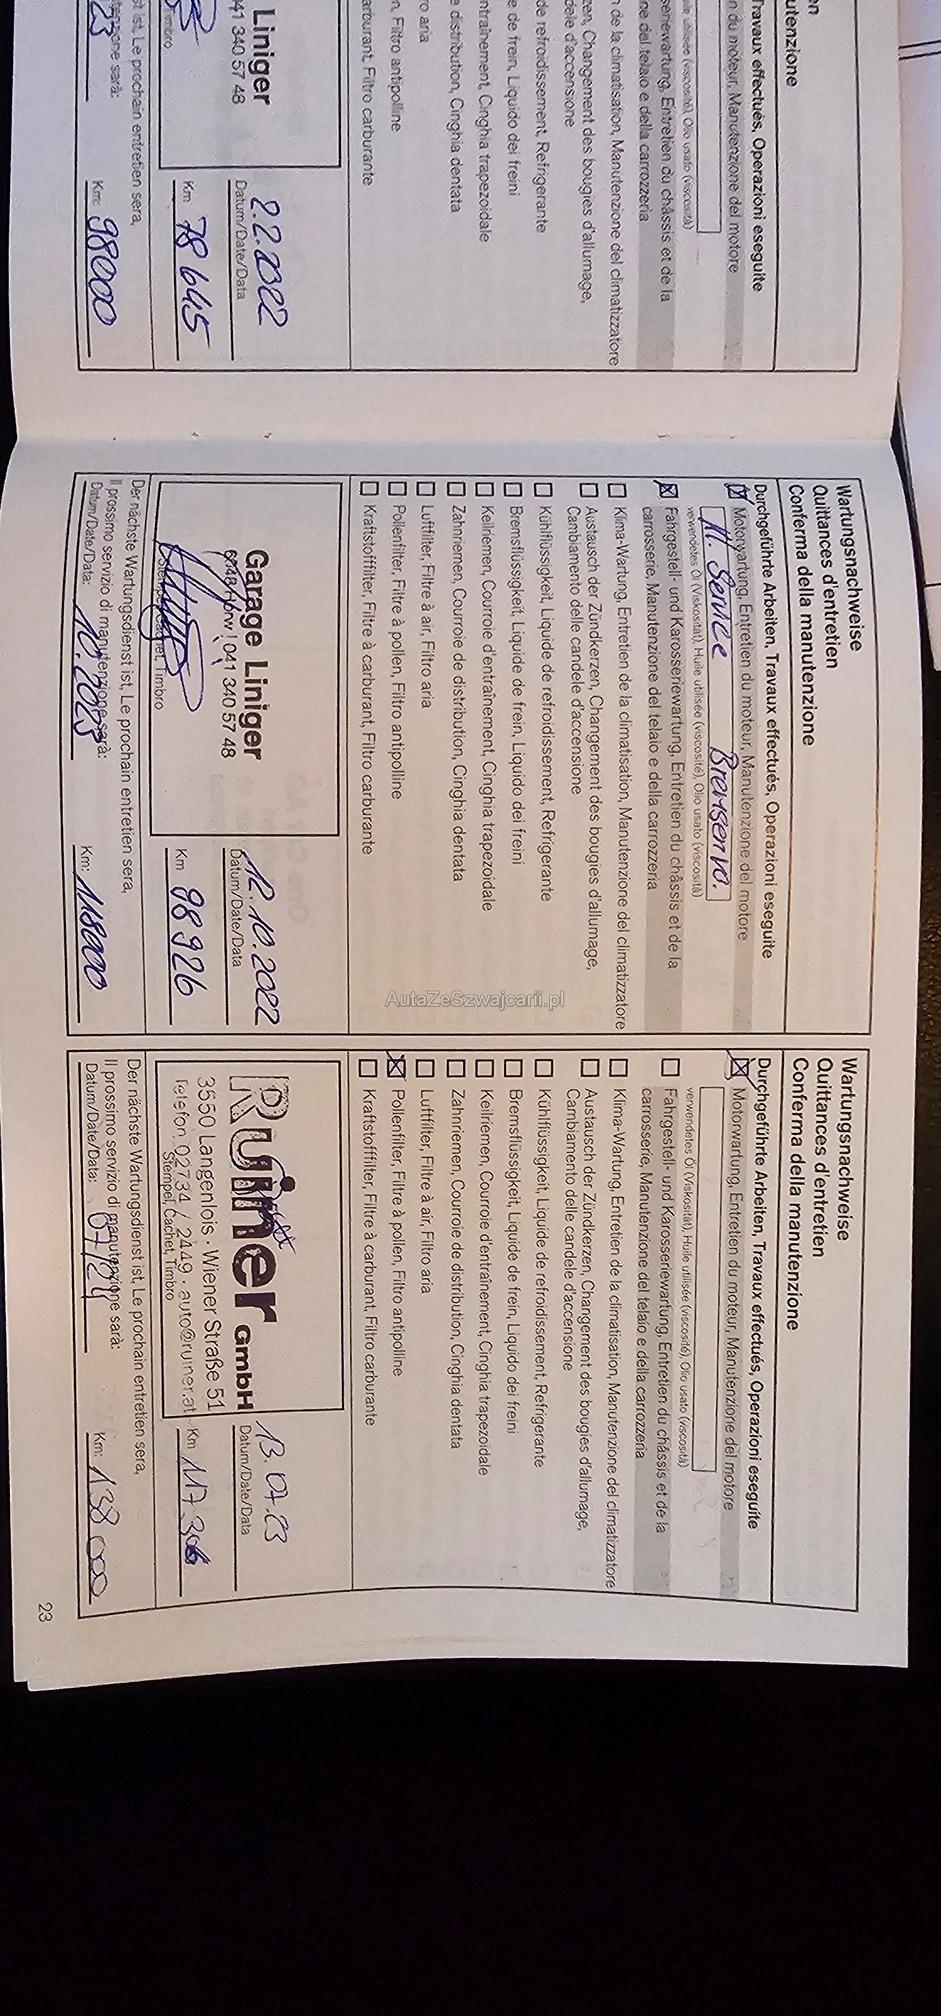 on
utenzione
Travaux effectués, Operazioni eseguite
n du moteur, Manutenzione del motore
ile utilisée (viscosité), Olio usato (viscosità)
seriewartung, Entretien du châssis et de la
ne del telaio e della carrozzeria
n de la climatisation, Manutenzione del climatizzatore
zen, Changement des bougies d'allumage,
dele d'accensione
de refroidissement, Refrigerante
e de frein, Liquido dei freini
ntraînement, Cinghia trapezoidale
e distribution, Cinghia dentata
ro aria
n, Filtro antipolline
arburant, Filtro carburante
Liniger
041 340 57 48
Timbro
2.2.2022
Datum/Date/Data
Km 78645
st ist, Le prochain entretien sera,
tenzione sarà:
23
Km: 98000
Wartungsnachweise
Quittances d'entretien
Conferma della manutenzione
Durchgeführte Arbeiten, Travaux effectués, Operazioni eseguite
Motorwartung, Entretien du moteur, Manutenzione del motore
Bremsservo.
verwendetes Öl (Viskosität), Huile utilisée (viscosité), Olio usato (viscosità)
Fahrgestell- und Karosseriewartung, Entretien du châssis et de la
carrosserie, Manutenzione del telaio e della carrozzeria
Klima-Wartung, Entretien de la climatisation, Manutenzione del climatizzatore
Austausch der Zündkerzen, Changement des bougies d'allumage,
Cambiamento delle candele d'accensione
Kühlflüssigkeit, Liquide de refroidissement, Refrigerante
Bremsflüssigkeit, Liquide de frein, Liquido dei freini
Keilriemen, Courroie d'entraînement, Cinghia trapezoidale
Zahnriemen, Courroie de distribution, Cinghia dentata
Luftfilter, Filtre à air, Filtro aria
Pollenfilter, Filtre à pollen, Filtro antipolline
Kraftstofffilter, Filtre à carburant, Filtro carburante
Garage Liniger
6048 Horw | 041 340 57 48
Stempel, Cachet, Timbro
12.10.2022
Datum/Date/Data
Km 98926
Der nächste Wartungsdienst ist, Le prochain entretien sera,
Il prossimo servizio di manutenzione sarà:
Datum/Date/Data: 10.2023
Km: 118000
Wartungsnachweise
Quittances d'entretien
Conferma della manutenzione
Durchgeführte Arbeiten, Travaux effectués, Operazioni eseguite
Motorwartung, Entretien du moteur, Manutenzione del motore
verwendetes Öl (Viskosität), Huile utilisée (viscosité), Olio usato (viscosità)
Fahrgestell- und Karosseriewartung, Entretien du châssis et de la
carrosserie, Manutenzione del telaio e della carrozzeria
Klima-Wartung, Entretien de la climatisation, Manutenzione del climatizzatore
Austausch der Zündkerzen, Changement des bougies d'allumage,
Cambiamento delle candele d'accensione
Kühlflüssigkeit, Liquide de refroidissement, Refrigerante
Bremsflüssigkeit, Liquide de frein, Liquido dei freini
Keilriemen, Courroie d'entraînement, Cinghia trapezoidale
Zahnriemen, Courroie de distribution, Cinghia dentata
Luftfilter, Filtre à air, Filtro aria
Pollenfilter, Filtre à pollen, Filtro antipolline
Kraftstofffilter, Filtre à carburant, Filtro carburante
Ruiner GmbH
3550 Langenlois · Wiener Straße 51
Telefon 02734 / 2449 · auto@ruiner.at
Stempel, Cachet, Timbro
13.07.23
Datum/Date/Data
Km 117306
Der nächste Wartungsdienst ist, Le prochain entretien sera,
Il prossimo servizio di manutenzione sarà:
Datum/Date/Data: 07/24
Km: 138000
23
AutaZeSzwajcarii.pl